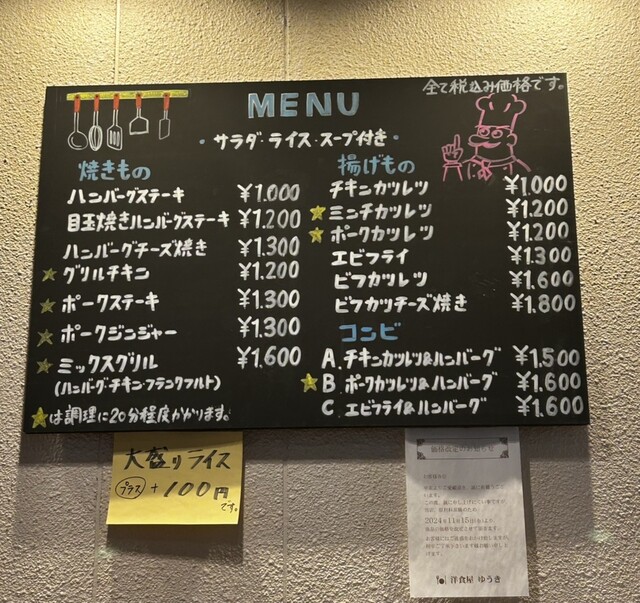 全て税込み価格です。
MENU
・サラダ・ライス・スープ付き・
焼きもの
ハンバーグステーキ ¥1.000
目玉焼きハンバーグステーキ ¥1.200
ハンバーグチーズ焼き ¥1.300
★グリルチキン ¥1.200
★ポークステーキ ¥1.300
★ポークジンジャー ¥1.300
★ミックスグリル ¥1.600
(ハンバーグ・チキン・フランクフルト)
★は調理に20分程度かかります。
揚げもの
チキンカツレツ ¥1.000
★ミンチカツレツ ¥1.200
★ポークカツレツ ¥1.200
エビフライ ¥1.300
ビフカツレツ ¥1.600
ビフカツチーズ焼き ¥1.800
コンビ
A.チキンカツレツ&ハンバーグ ¥1.500
★B ポークカツレツ&ハンバーグ ¥1.600
C エビフライ&ハンバーグ ¥1.600
大盛りライス
プラス +100円
です。
価格改定のお知らせ
2024年11月15日(金)より
洋食屋 ゆうき